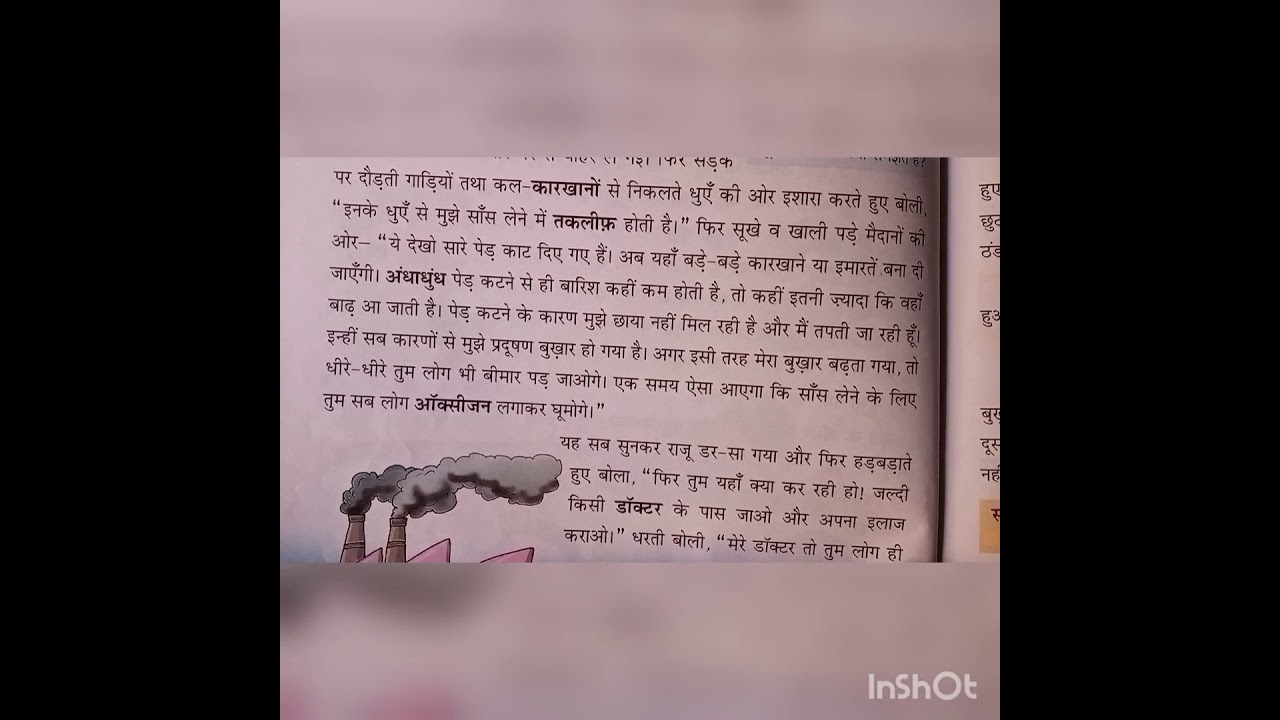 फिर सड़क
पर दौड़ती गाड़ियों तथा कल-कारखानों से निकलते धुएँ की ओर इशारा करते हुए बोली,
“इनके धुएँ से मुझे साँस लेने में तकलीफ़ होती है।” फिर सूखे व खाली पड़े मैदानों की
ओर– “ये देखो सारे पेड़ काट दिए गए हैं। अब यहाँ बड़े-बड़े कारखाने या इमारतें बना दी
जाएँगी। अंधाधुंध पेड़ कटने से ही बारिश कहीं कम होती है, तो कहीं इतनी ज़्यादा कि वहाँ
बाढ़ आ जाती है। पेड़ कटने के कारण मुझे छाया नहीं मिल रही है और मैं तपती जा रही हूँ।
इन्हीं सब कारणों से मुझे प्रदूषण बुख़ार हो गया है। अगर इसी तरह मेरा बुख़ार बढ़ता गया, तो
धीरे-धीरे तुम लोग भी बीमार पड़ जाओगे। एक समय ऐसा आएगा कि साँस लेने के लिए
तुम सब लोग ऑक्सीजन लगाकर घूमोगे।”
यह सब सुनकर राजू डर-सा गया और फिर हड़बड़ाते
हुए बोला, “फिर तुम यहाँ क्या कर रही हो! जल्दी
किसी डॉक्टर के पास जाओ और अपना इलाज
कराओ।” धरती बोली, “मेरे डॉक्टर तो तुम लोग ही
हुए
ठंड
नहीं
InShOt